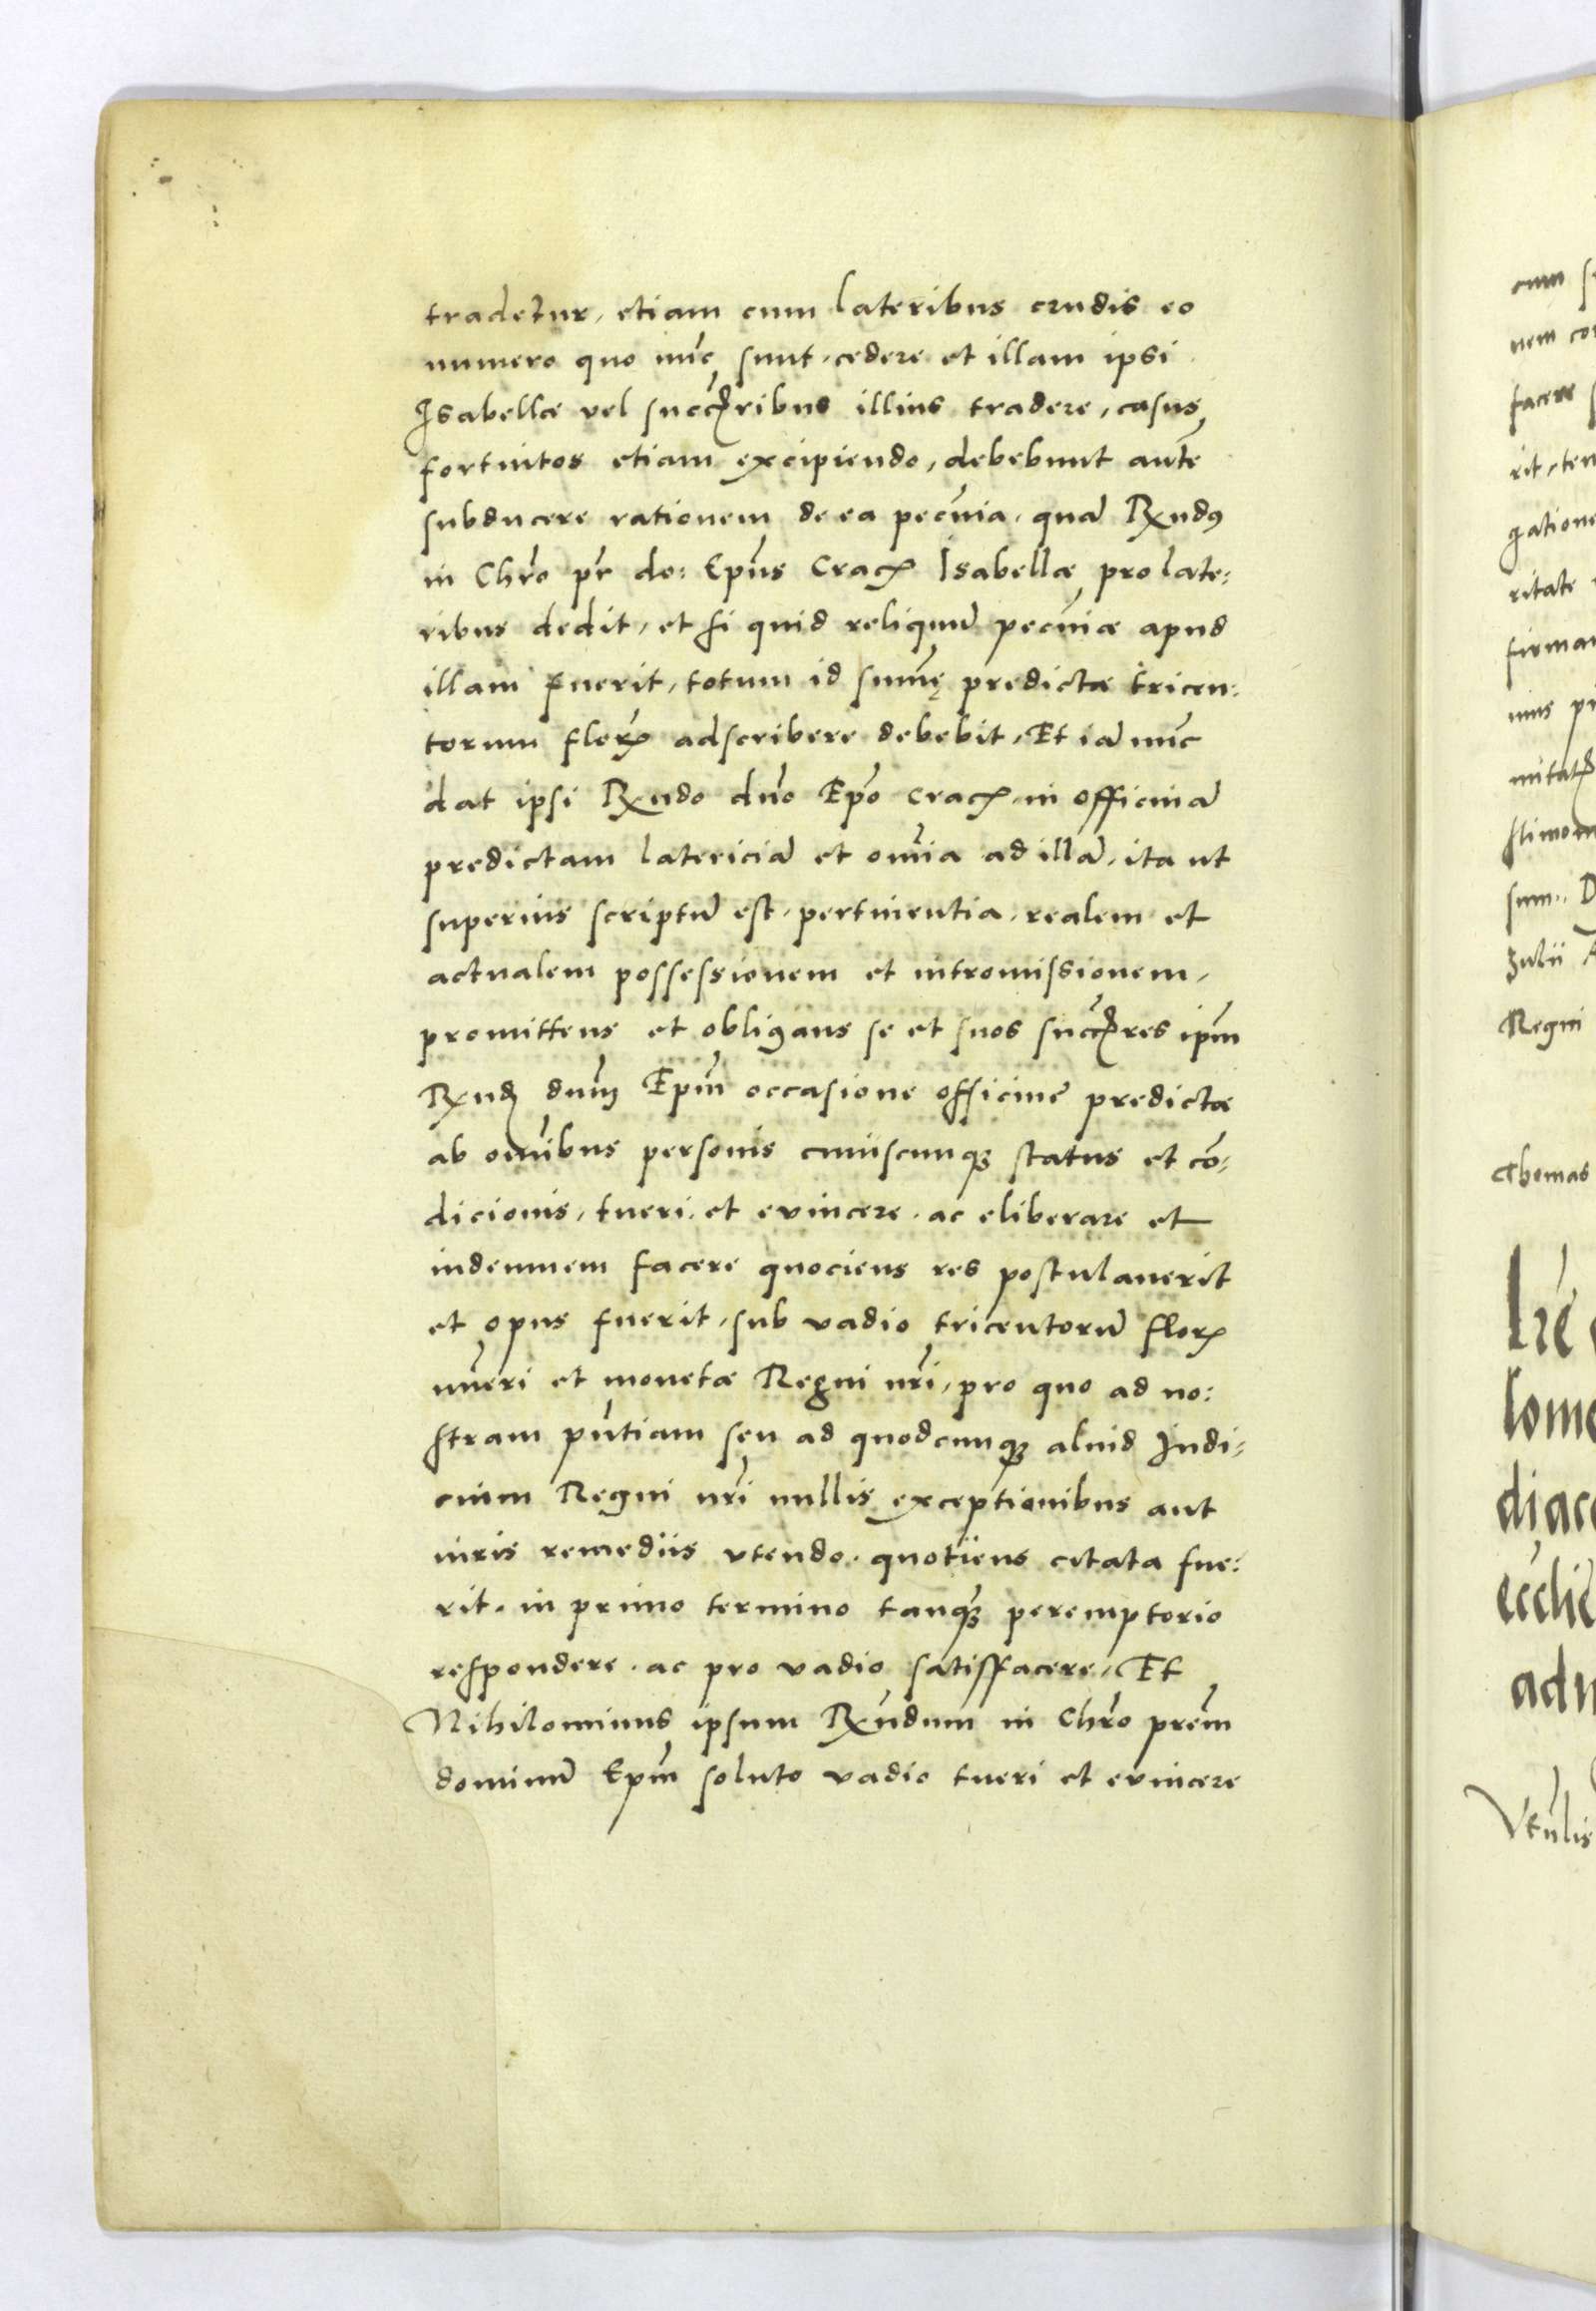 tradetur, etiam cum lateribus crudis eo
numero quo nu̅c sunt, cedere et illam ipsi
Isabellæ vel succ̅ribus illius tradere, casus
fortuitos etiam excipiendo, debebunt aute̅
subducere rationem de ea pecu̅nia, qua̅ Rx̅ndus
in Chr̅o pr̅ do: Ep̅us Crac̅ Isabellæ pro late:
ribus dedit, et si quid reliquu̅ pecu̅niæ apud
illam fuerit, totum id sum̅ę predictæ tricen:
torum flor̅ adscribere debebit, Et ia̅ nu̅c
dat ipsi Rx̅ndo dn̅o Ep̅o Crac̅, in officina̅
predictam latericia̅ et om̅ia ad illa̅, ita ut
superius scriptu̅ est, pertinentia, realem et
actualem possessionem et intromissionem,
promittens et obligans se et suos succ̅res ip̅m
Rx̅nd dn̅m Ep̅m occasione officine̅ predictæ
ab om̅ibus personis cuiuscunq̨ status et co̅:
dicionis, tueri, et evincere, ac eliberare et
indemnem facere quociens res postulaverit
et opus fuerit, sub vadio tricentoru̅ flor̅
nu̅eri et monetæ Regni nr̅i, pro quo ad no:
stram pn̅tiam seu ad quodcunq̨ aliud Iudi:
cium Regni nr̅i nullis exceptionibus aut
iuris remediis utendo, quotiens citata fue:
rit, in primo termino tanq̨ peremptorio
respondere, ac pro vadio satisffacere, Et
Nihilominus ipsum Rx̅ndum in Chr̅o pr̅em
dominu̅ Ep̅m soluto vadio tueri et evincere
cum
nem
facere
rit, ten
gatione
ritate
firma
sum. D
Julii
Regni
Thomas